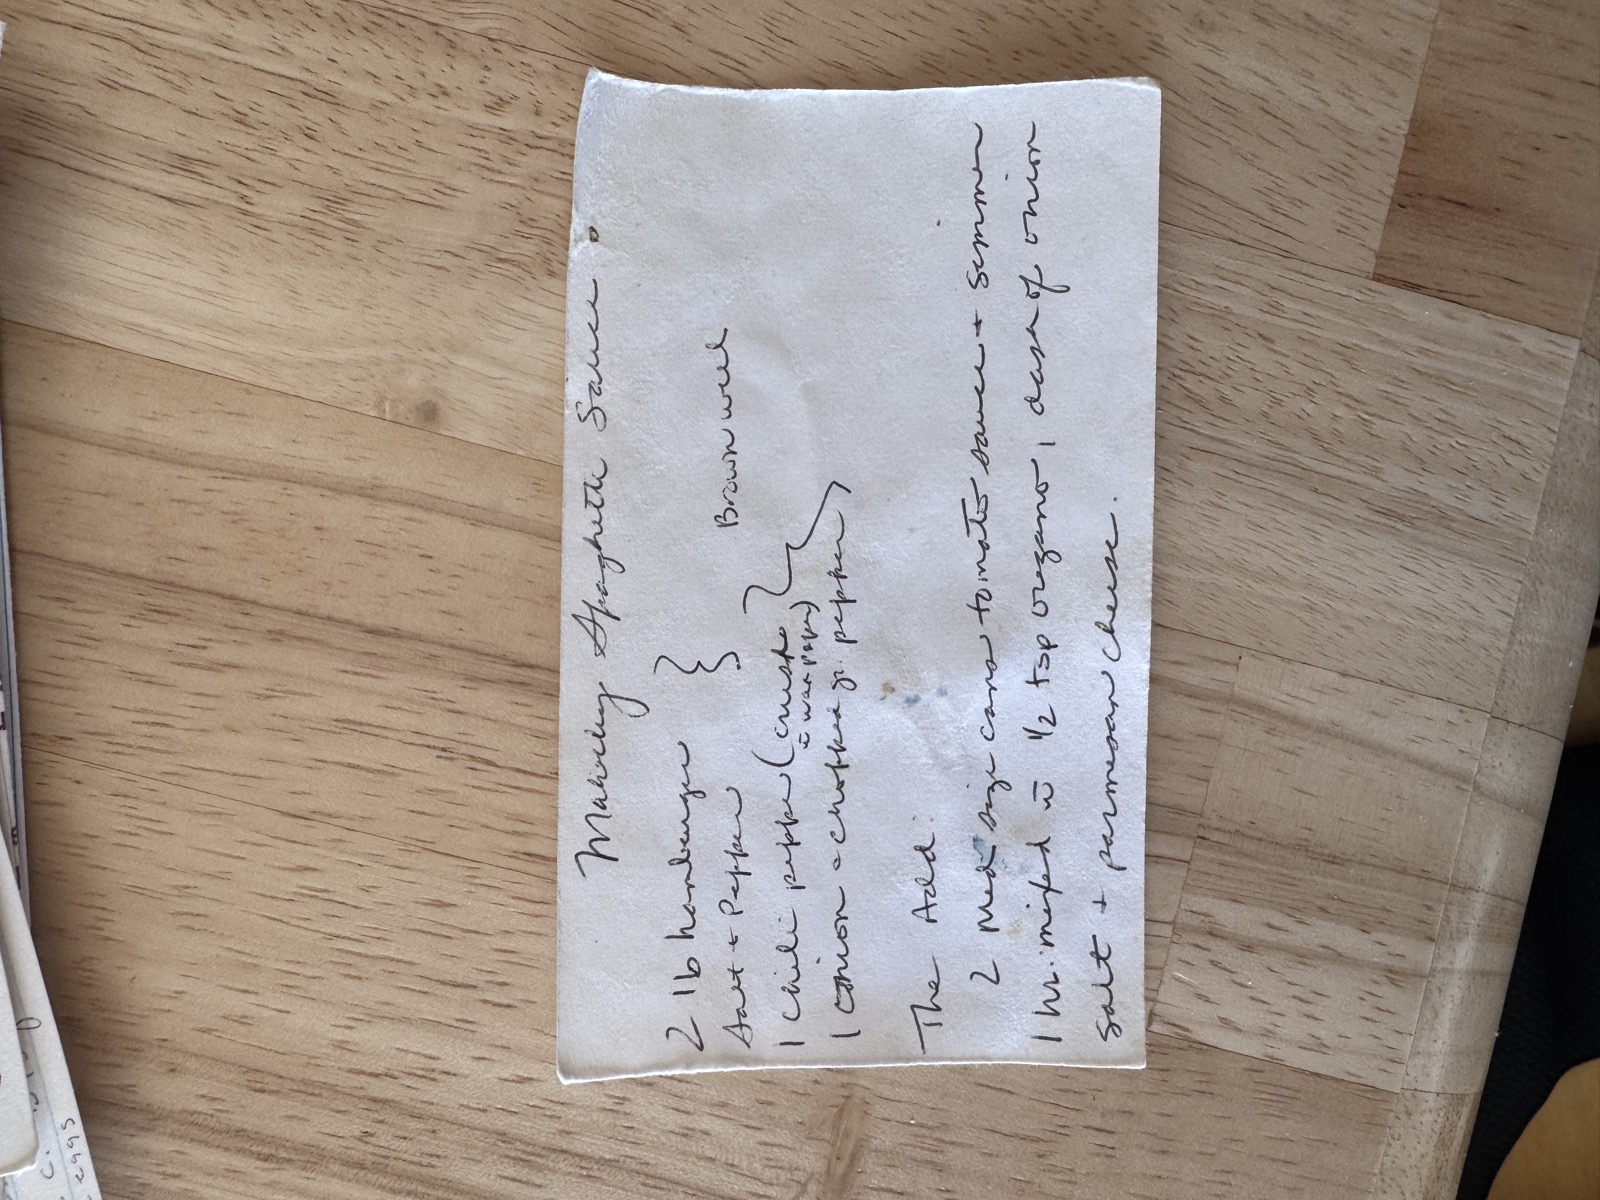 Spaghetti Sauce
2 lb hamburger
Salt + Pepper } Brown well
1 chili pepper (crush
c̄ wax paper)
1 onion - chopped gr. pepper
The Add:
2 Med size cans tomato sauce + simmer
1 hr. mixed c̄ 1/2 tsp oregano, dash of onion
salt + parmesan cheese.
c.
eggs